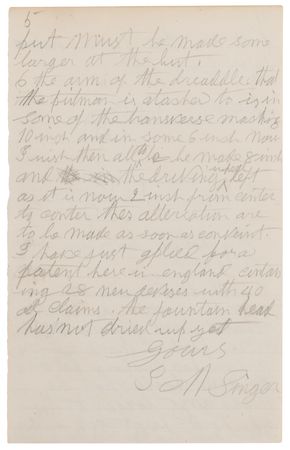 5
but Must be made some
larger at the but.
6 the arm of the dreaddle that
the pitman is atasher to is in
some of the transverse mashing
10 inch and in some 6 inch now
I wish then all to be made 8 inch
and the driving shaft
as it is now 2 inch from center
to center thes alteration are
to be made as soon as
I have just aplied for a
patent here in england contain
ing 28 new devises with 40
od claims. the fountain head
has not dried up yet
Yours
I M Singer